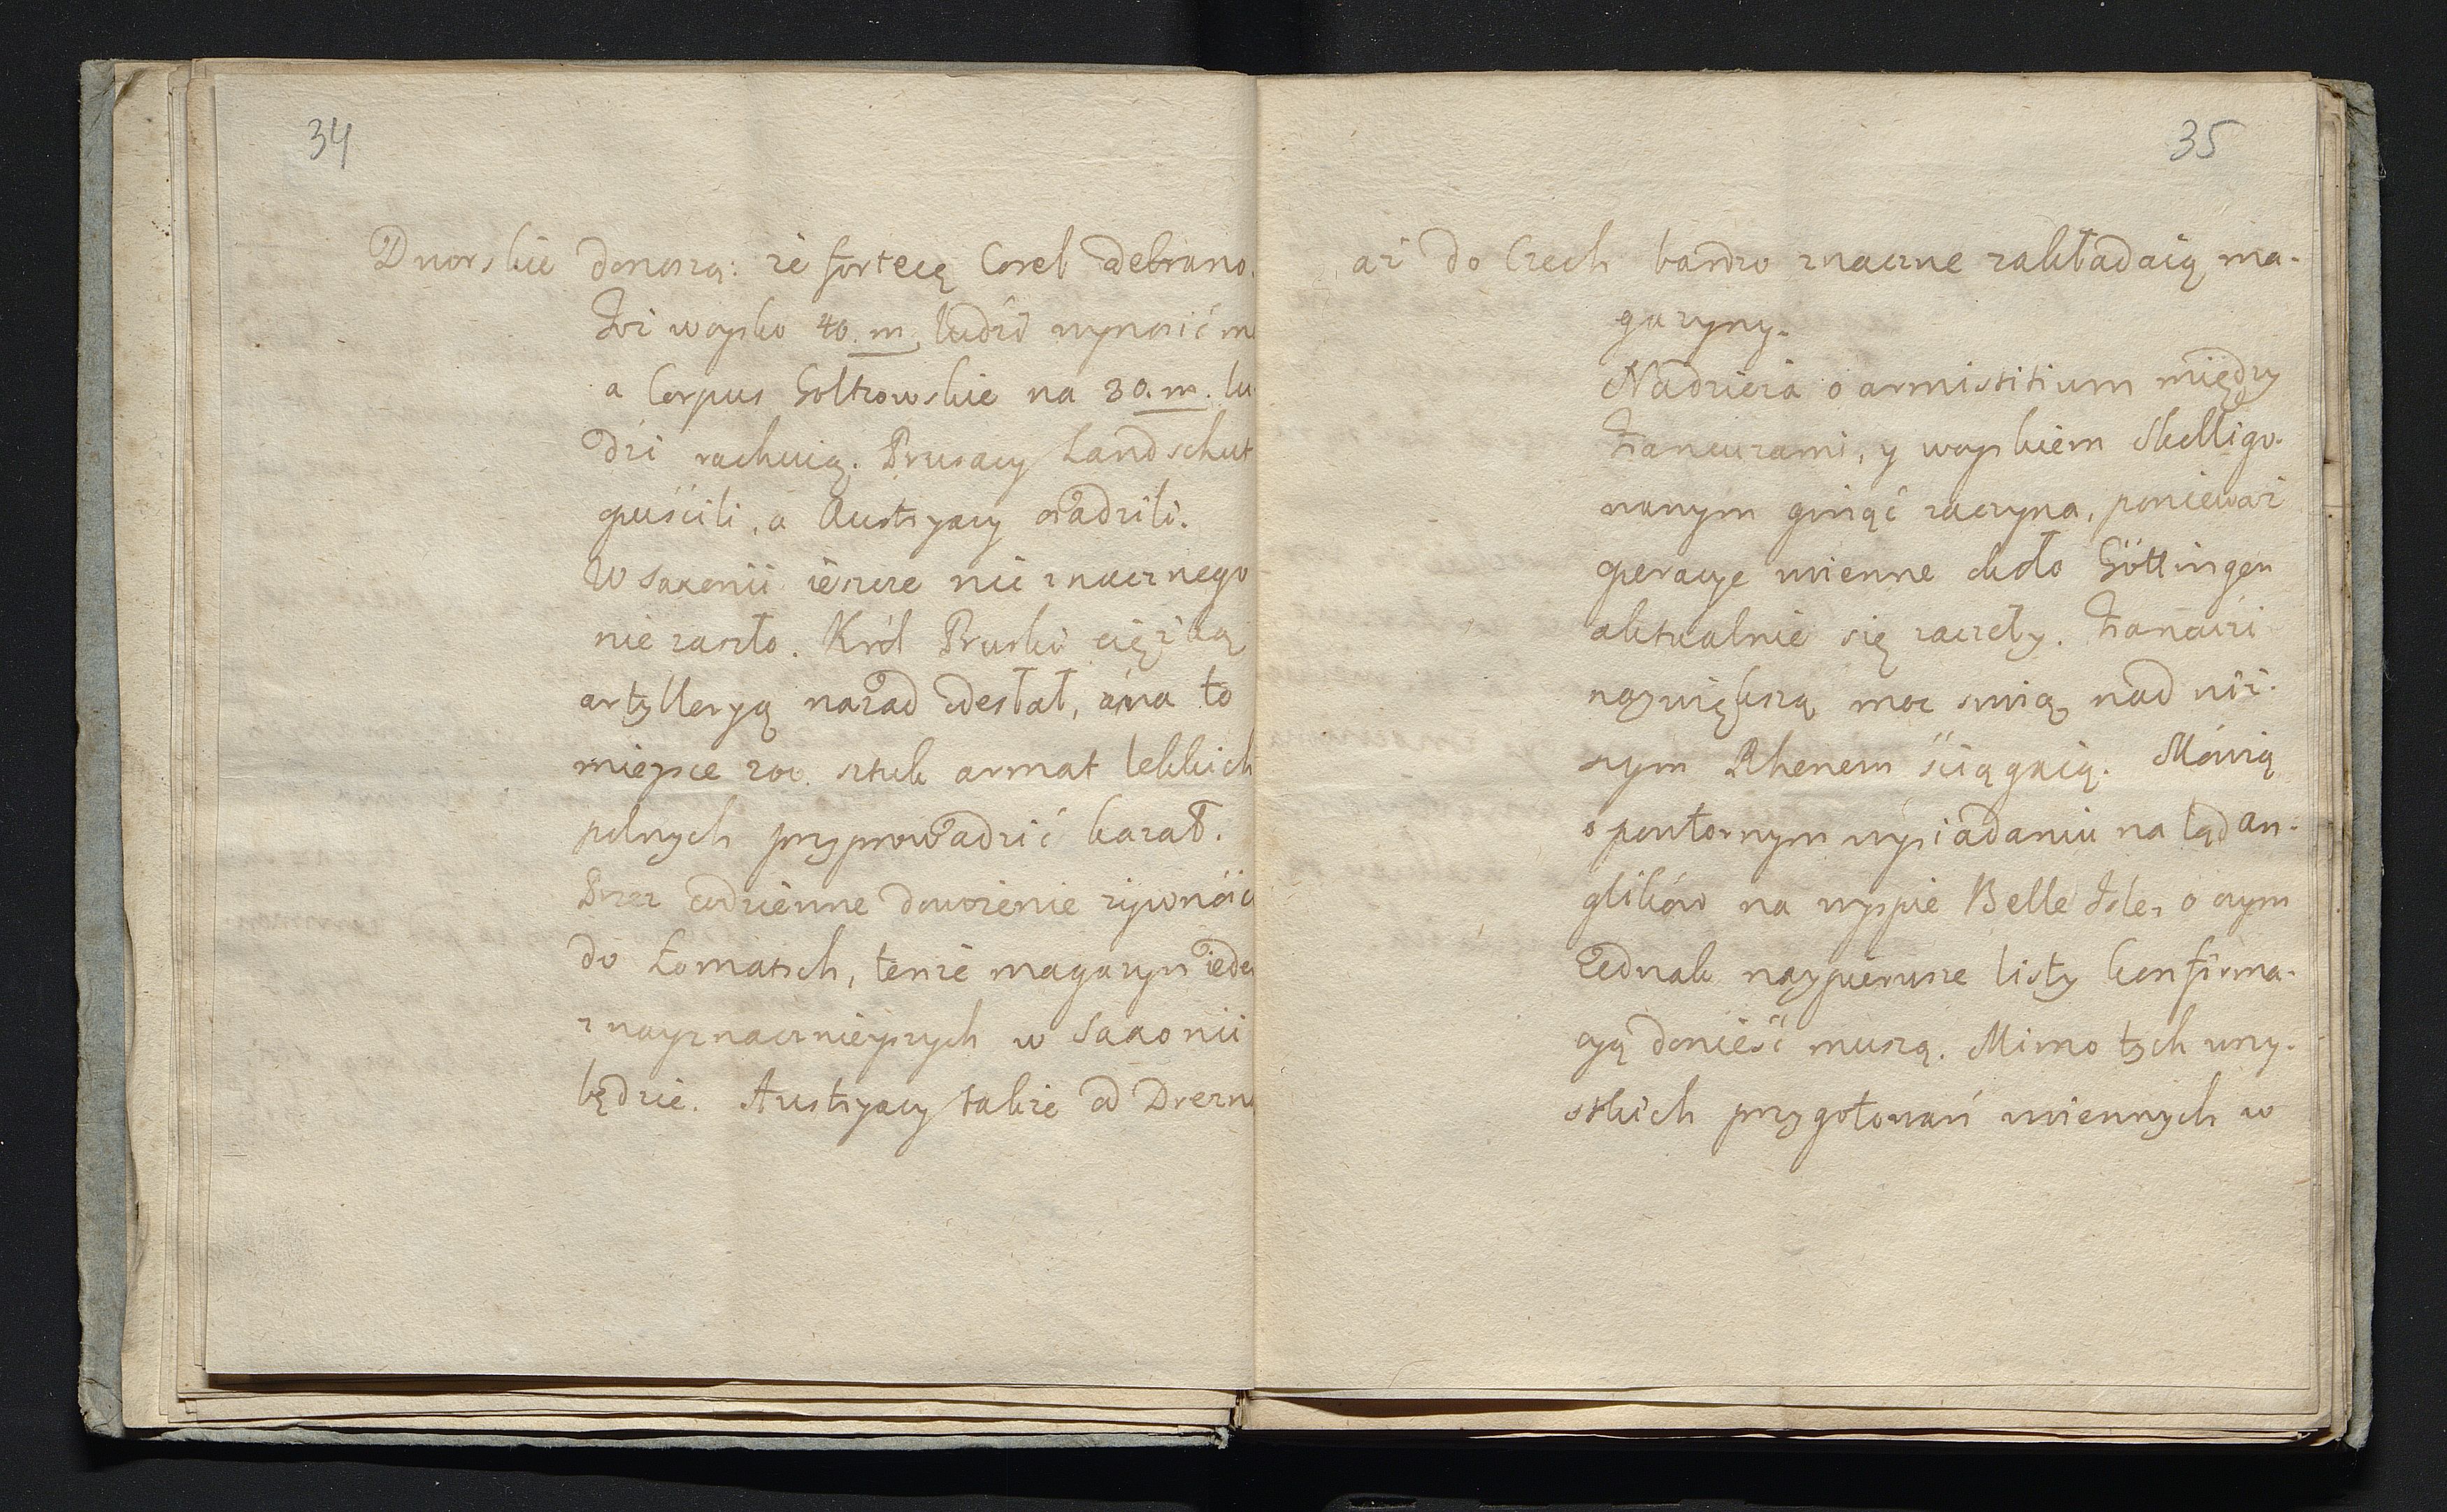 34
Dworskie donoszą: że fortecę Cosel odebrano.
Iż woysko 40.m. ludzi wynosić m
a Corpus Goltzowskie na 30.m. lu
dzi rachuią. Prusacy Landschut
opuścili, a Austryacy osadzili.
W Saxonii ieszcze nic znacznego
nie zaszło. Król Pruski ciężką
artylleryą nazad odesłał, a na to
mieysce 200. sztuk armat lekkich
polnych przyprowadzić kazał.
Przez codzienne dowożenie żywnośc
do Lomatsch, tenże magazyn iede
z nayznacznieyszych w Saxonii
będzie. Austryacy także od Drezn
35
aż do Czech bardzo znaczne zakładaią ma-
gazyny.
Nadzieia o armistitium między
Francuzami, y woyskiem Skolligo-
wanym ginąć zaczyna, ponieważ
operacye woienne około Göttingen
aktualnie się zaczęły. Francuzi
naywiększą moc swoią nad niż-
szym Rhenem ściągaią. Mówią
o powtornym wysiadaniu na ląd An-
glików na wyspie Belle Isle, o czym
iednak naypierwsze listy konfirma-
cyą donieść muszą. Mimo tych wszy-
stkich przygotowań woiennych w